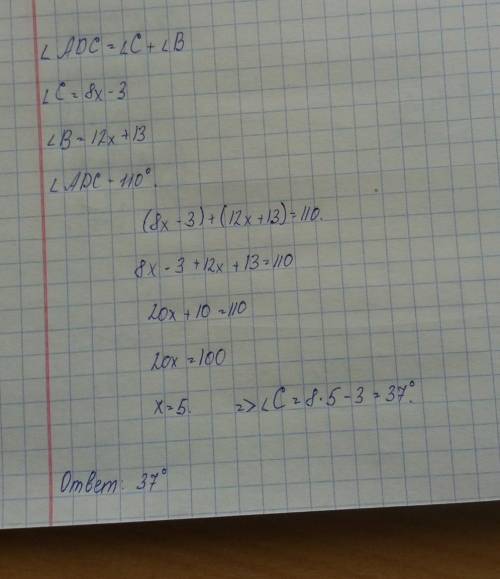 ∠ADC = ∠C + ∠B
∠C = 8x - 3
∠B = 12x + 13
∠ADC - 110°.
(8x - 3) + (12x + 13) = 110.
8x - 3 + 12x + 13 = 110
20x + 10 = 110
20x = 100
x = 5. => ∠C = 8 · 5 - 3 = 37°.
Ответ: 37°